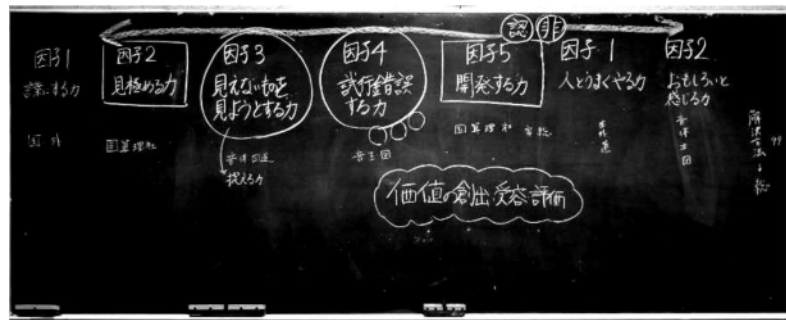 認 非
因子1
言葉にする力
国.外
因子2
見極める力
国算理社
因子3
見えないものを
見ようとする力
音体図道
捉える力
因子4
試行錯誤
する力
因子5
開発する力
国算理社
因子1
人とうまくやる力
因子2
おもしろいと
感じる力
価値の創出受容評価
解決方法